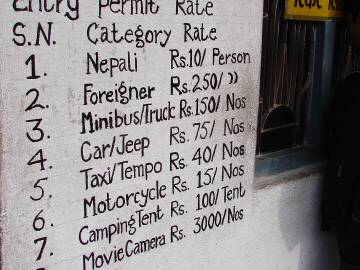 Entry Permit Rate
S.N. Category Rate
1. Nepali Rs.10/ Person
2. Foreigner Rs.250/ ))
3. Minibus/Truck Rs.150/ Nos
4. Car/Jeep Rs. 75/ Nos
5. Taxi/Tempo Rs. 40/ Nos
6. Motorcycle Rs. 15/ Nos
7. Camping Tent Rs. 100/Tent
Movie Camera Rs. 3000/Nos